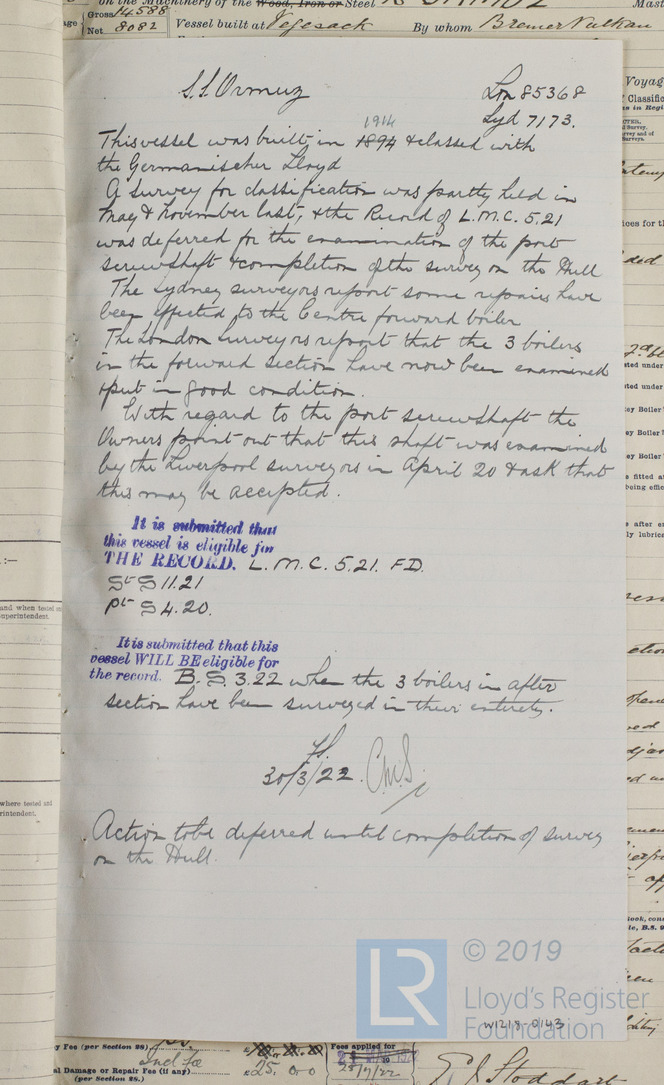 on the Machinery of the Wood, Iron or Steel
Gross 14588
Net 8082
Vessel built at Vegesack By whom Bremer Vulkan
S.S. Ormuz Lon 85368
Syd 7173.
1914
This vessel was built in 1894 & classed with
the Germanischer Lloyd
A survey for classification was partly held in
May & November last, & the Record of L.M.C. 5,21
was deferred for the examination of the port
screwshaft & completion of the survey on the Hull
The Sydney surveyors report some repairs have
been effected to the Centre forward boiler
The London Surveyors report that the 3 boilers
in the forward section have now been examined
& put in good condition.
With regard to the port screwshaft the
Owners point out that this shaft was examined
by the Liverpool surveyors in April 20 & ask that
this may be accepted.
It is submitted that
this vessel is eligible for
THE RECORD. L.M.C. 5.21. F.D.
St S 11.21
Pt S 4.20.
It is submitted that this
vessel WILL BE eligible for
the record. B.S. 3.22 when the 3 boilers in after
section have been surveyed in their entirety.
30/3/22. C.M.S.
Action to be deferred until completion of survey
on the Hull.
LR © 2019
Lloyd's Register
Foundation
W1218-0143
and when tested
Superintendent.
where tested and
rintendent.
Fee (per Section 28)
Damage or Repair Fee (if any)
(per Section 28.)
£25. 0. 0
Fees applied for
28/7/22